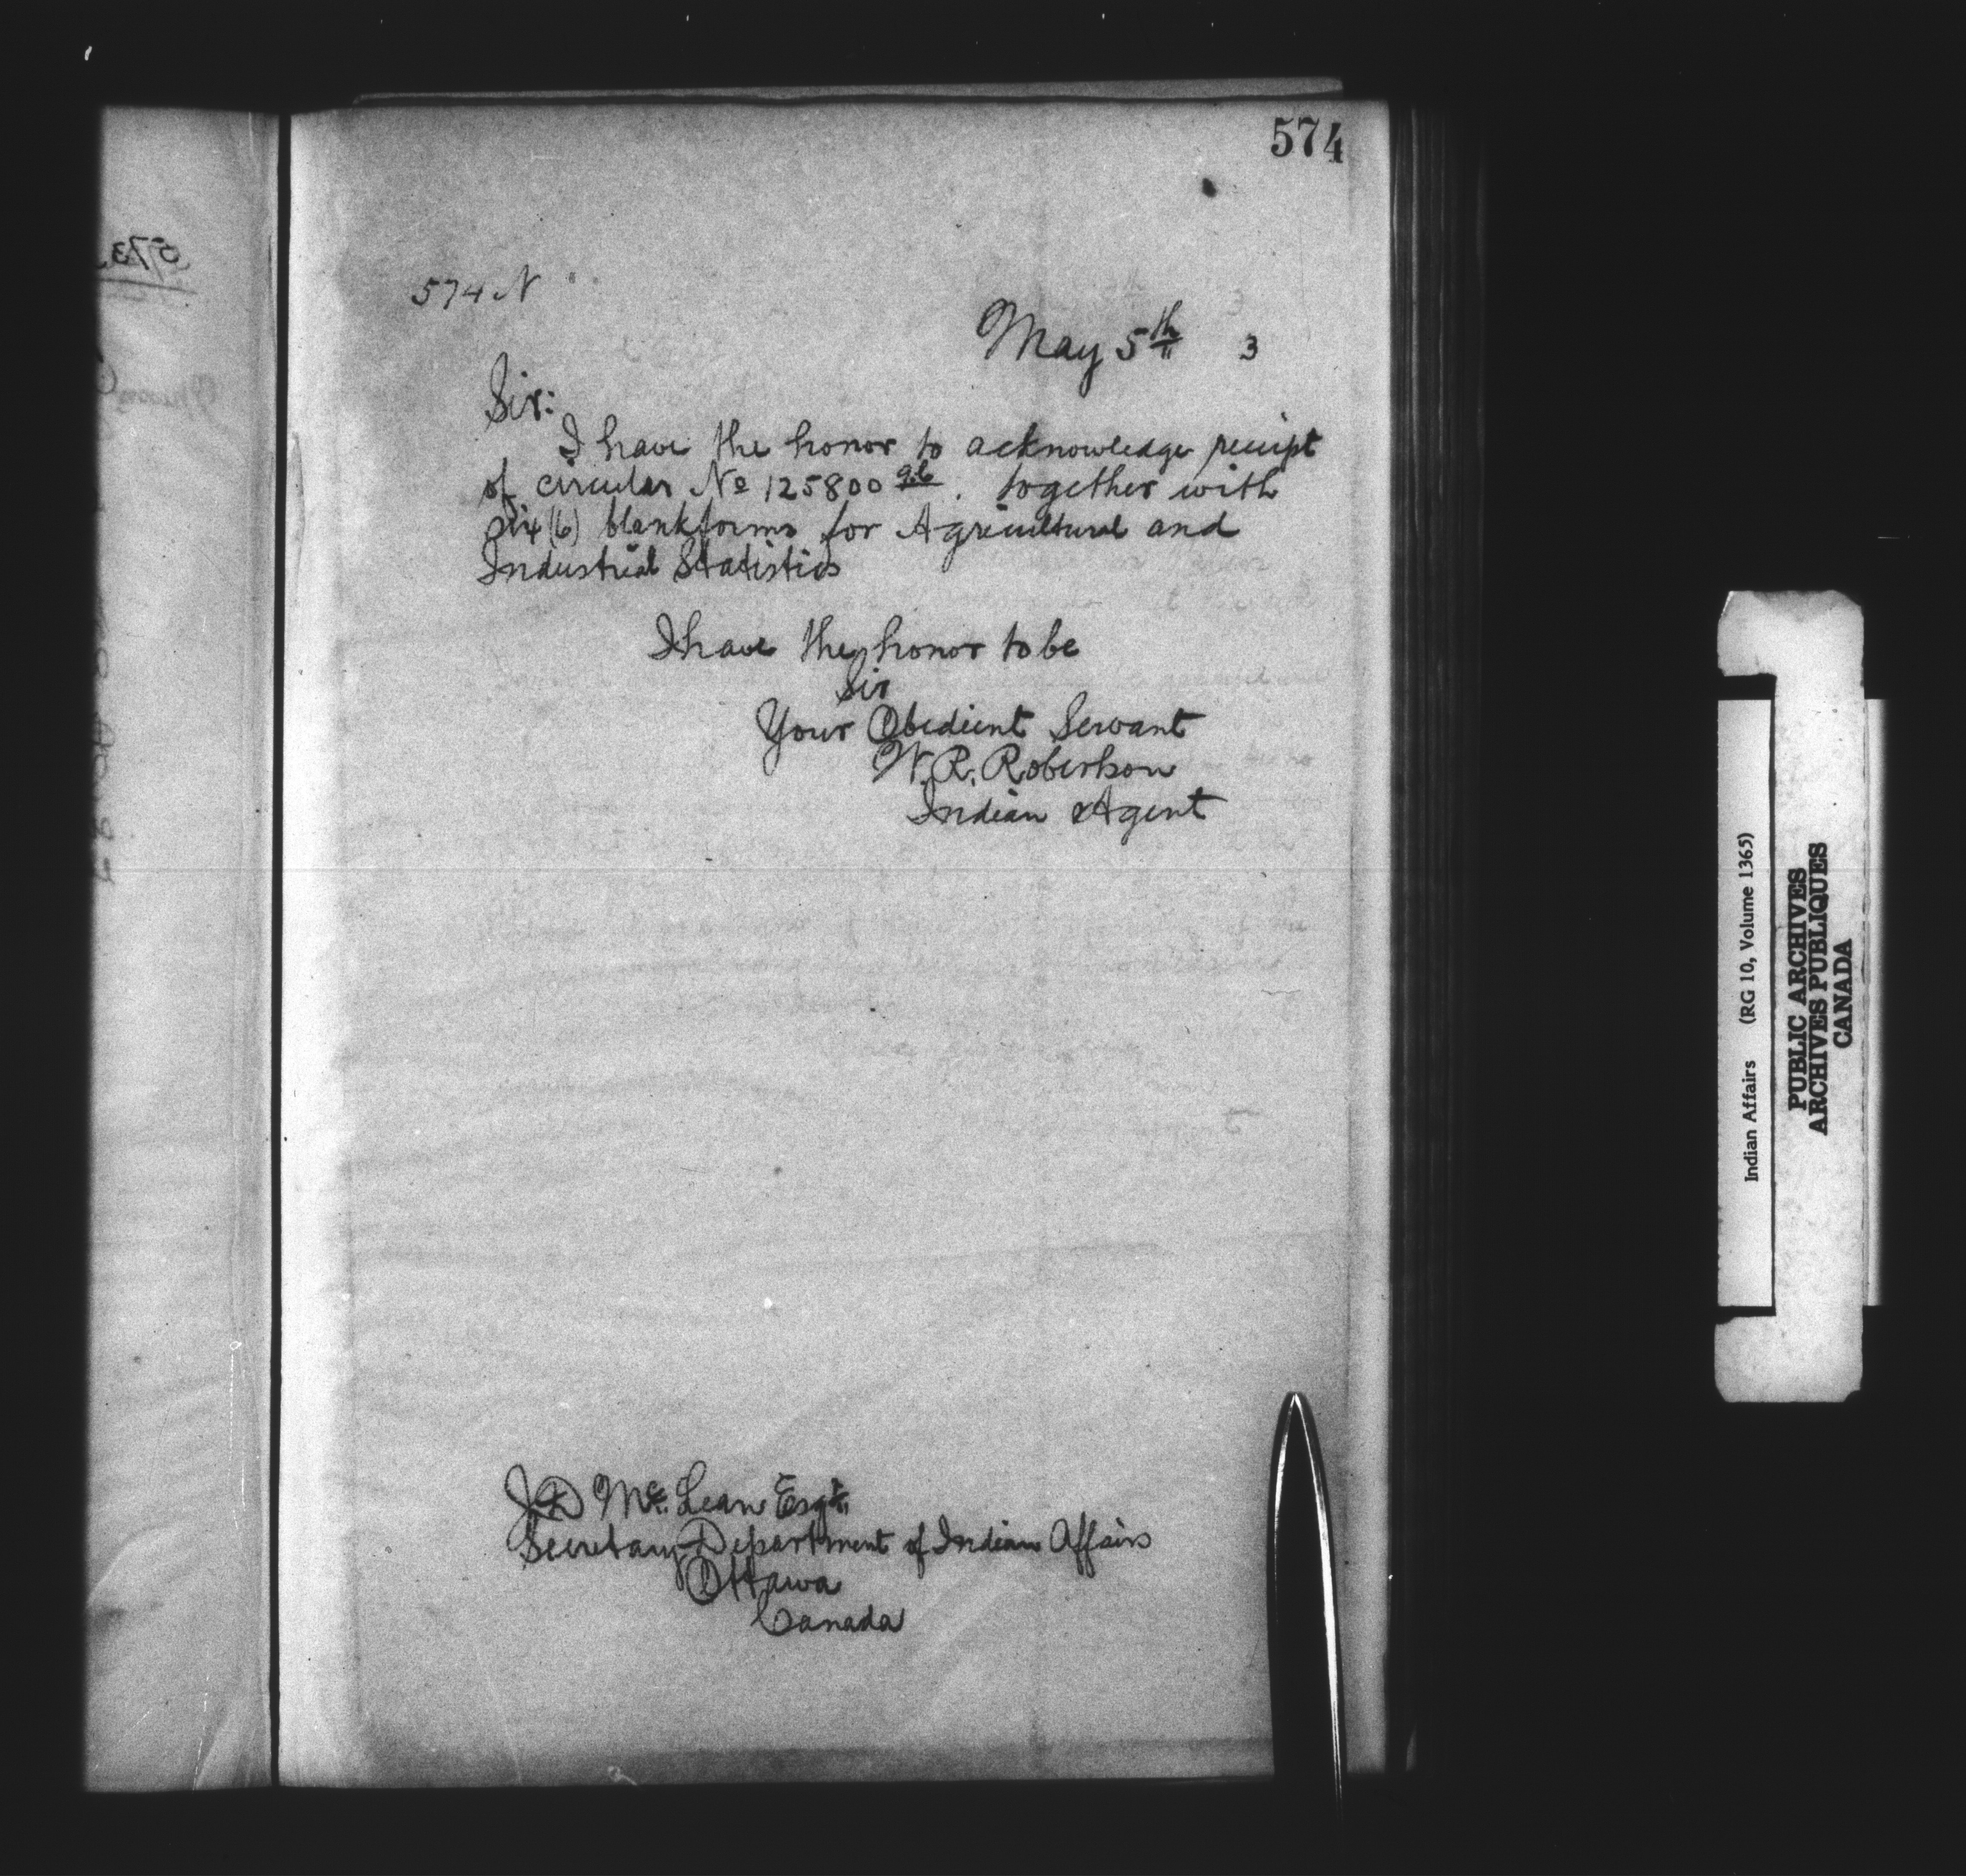 574
573
574 N
May 5th 3
Sir:
I have the honor to acknowledge receipt
of circular No 125800 together with
six (6) blank forms for Agricultural and
Industrial Statistics
I have the honor to be
Sir
Your Obedient Servant
W. R. Robertson
Indian Agent
J D Mc. Lean Esqr.
Secretary Department of Indian Affairs
Ottawa
Canada
Indian Affairs (RG 10, Volume 1365)
PUBLIC ARCHIVES
ARCHIVES PUBLIQUES
CANADA